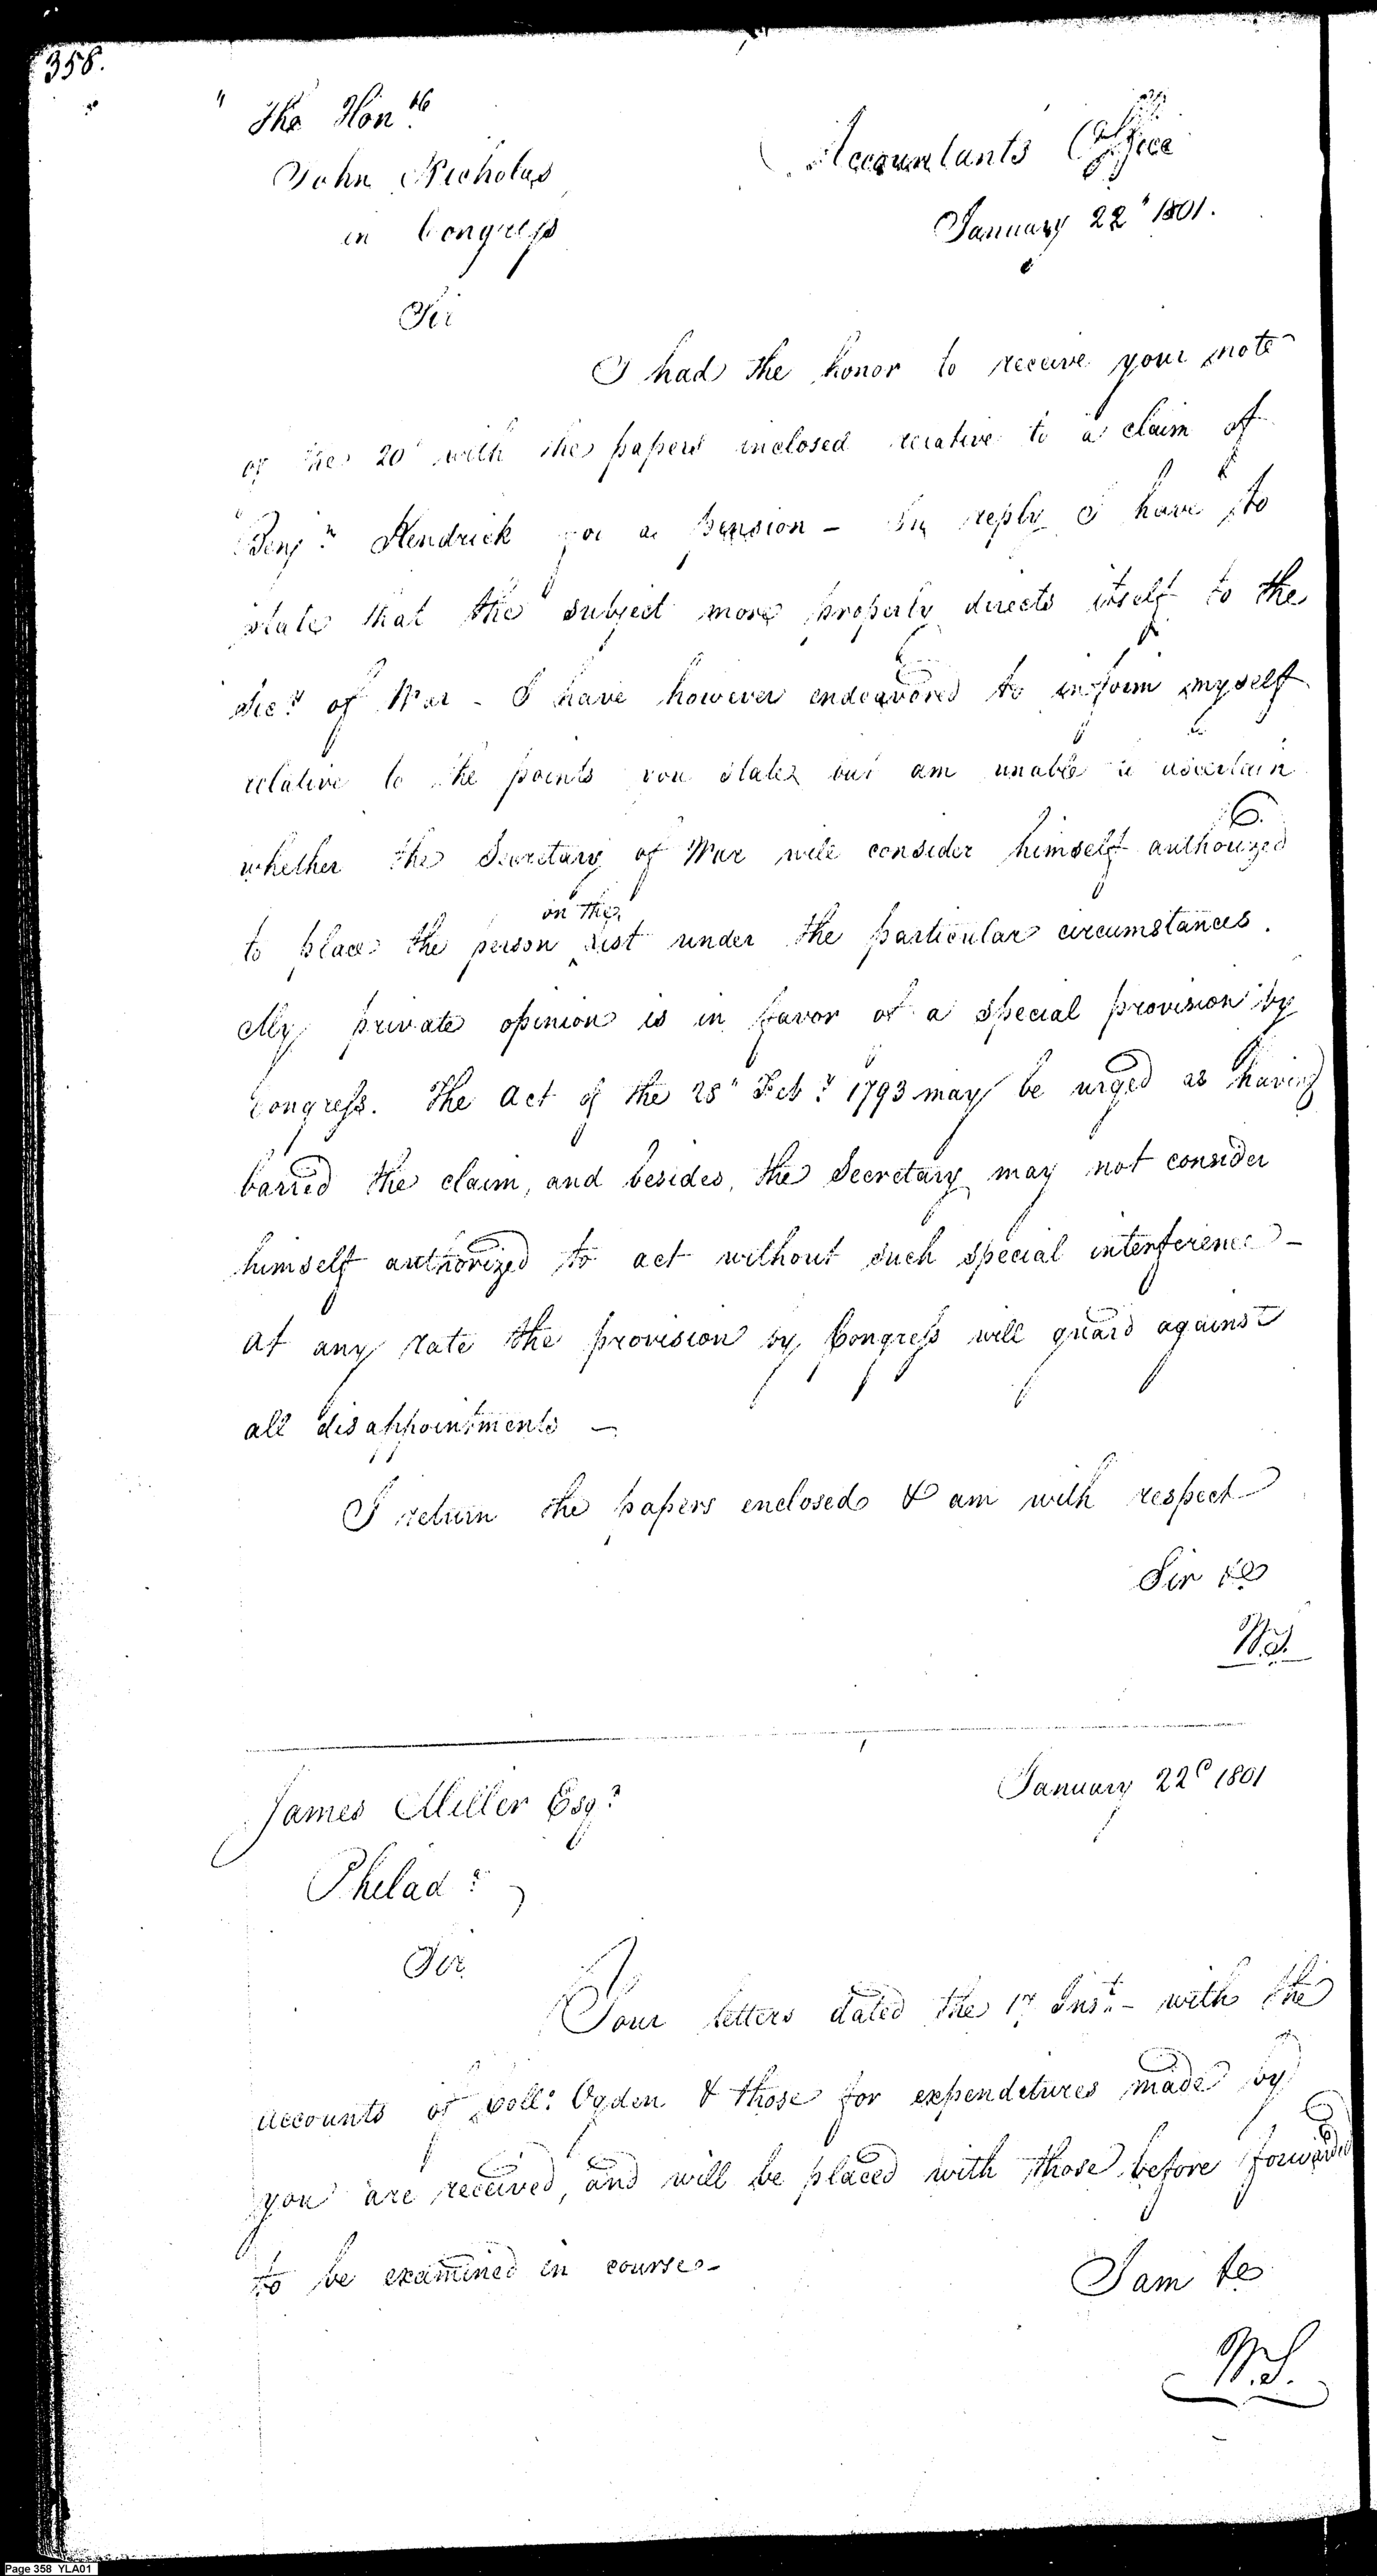 358.
The Hon.ble
Accountants Office
John Nicholas
January 22d 1801.
in Congress
Sir
I had the honor to receive your note
of the 20th with the papers inclosed relative to a claim of
Benjn. Hendrick for a Pension – In reply I have to
state that the subject more properly directs itself to the
Secy. of War – I have however endeavored to inform myself
relative to the points you state, but am unable to ascertain
whether the Secretary of War will consider himself authorized
to place the person ^on the list under the particular circumstances.
My private opinion is in favor of a special provision by
Congress. The Act of the 28th Feby. 1793 may be urged as having
barred the claim, and besides, the Secretary may not consider
himself authorized to act without such special interference –
at any rate the provision by Congress will guard against
all disappointments –
I return the papers enclosed & am with respect
Sir &c
W.S.
January 22d 1801
James Miller Esqr.
Philada.
Sir
Your letters dated the 17 Inst. – with the
accounts of Coll. Ogden & those for expenditures made by
you are received, and will be placed with those before forwarded
to be examined in course –
I am &c
W.S.
Page 358 YLA01